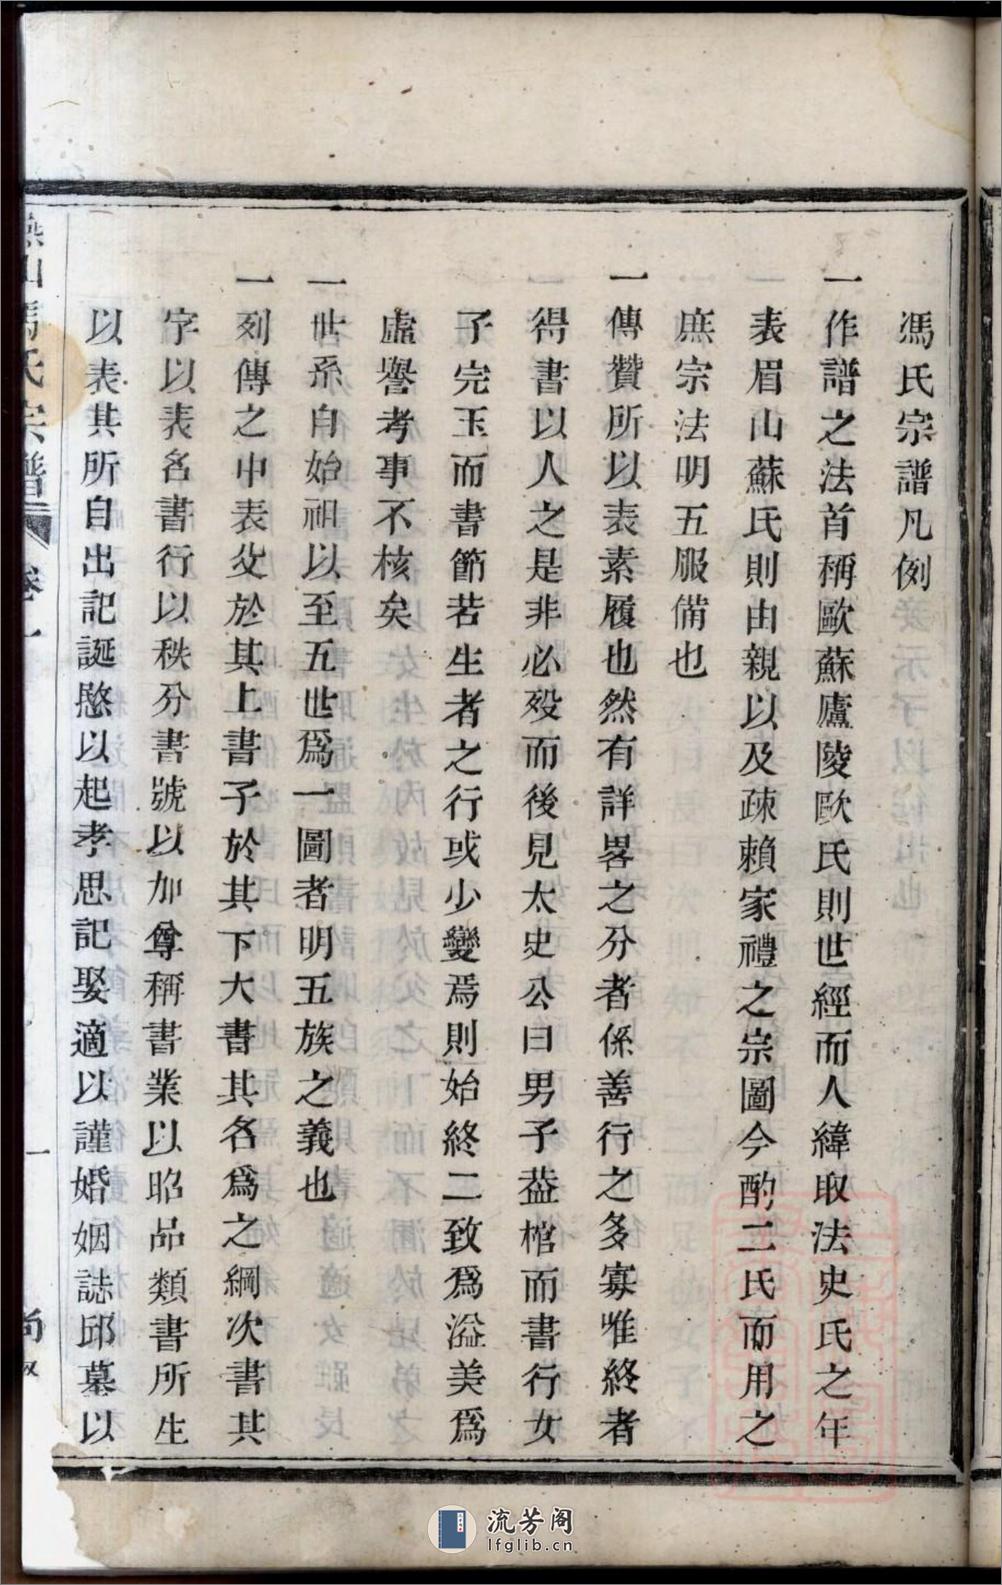 馮氏宗譜凡例
一作譜之法首稱歐蘇廬陵歐氏則世經而人緯取法史氏之年
表眉山蘇氏則由親以及疎賴家禮之宗圖今酌二氏而用之
庶宗法明五服備也
一傳贊所以表素履也然有詳畧之分者係善行之多寡唯終者
得書以人之是非必歿而後見太史公曰男子葢棺而書行女
子完玉而書節若生者之行或少變焉則始終二致爲溢美爲
虛譽考事不核矣
一世系自始祖以至五世爲一圖者明五族之義也
一列傳之中表父於其上書子於其下大書其名爲之綱次書其
字以表名書行以秩分書號以加尊稱書業以昭品類書所生
以表其所自出記誕愍以起孝思記娶適以謹婚姻誌邱墓以
山馮氏宗譜 卷一 一
流芳阁
lfglib.cn